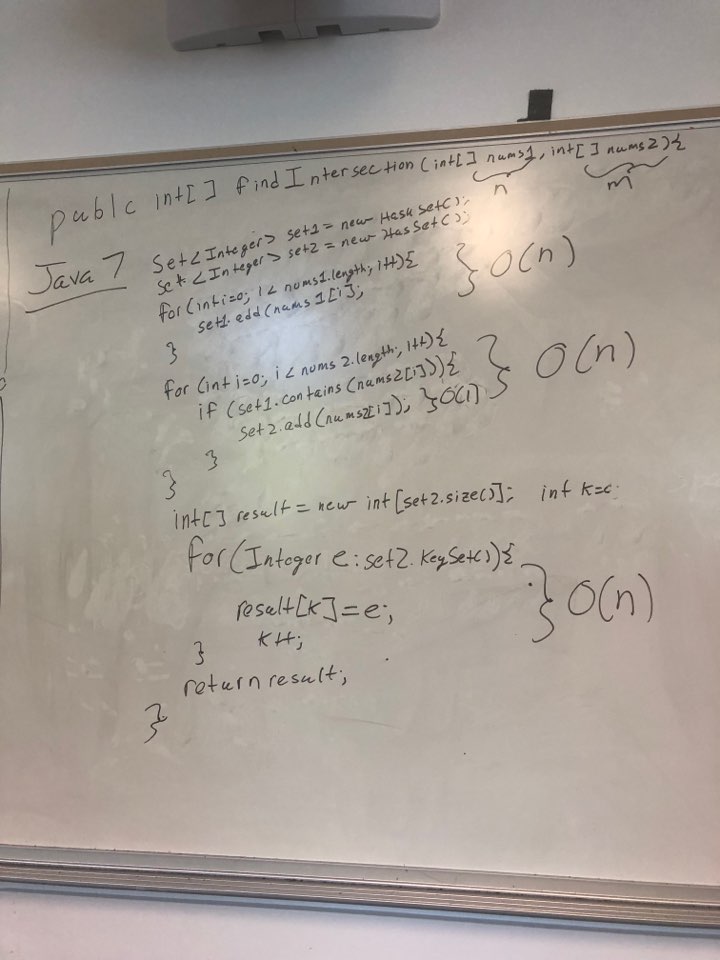 publc int[] findIntersection(int[] nums1, int[] nums2){
n m
Java 7
Set<Integer> set1 = new HashSet();
Set<Integer> set2 = new HasSet();
for(int i=0; i<nums1.length; i++){
set1.add(nums1[i];
}
} O(n)
for(int i=0; i<nums2.length; i++){
if (set1.contains(nums2[i])){
set2.add(nums2[i]); } O(1)
}
}
} O(n)
int[] result = new int[set2.size()]; int k=
for(Integer e:set2.keySet()){
result[k]=e;
k++;
}
} O(n)
return result;
}